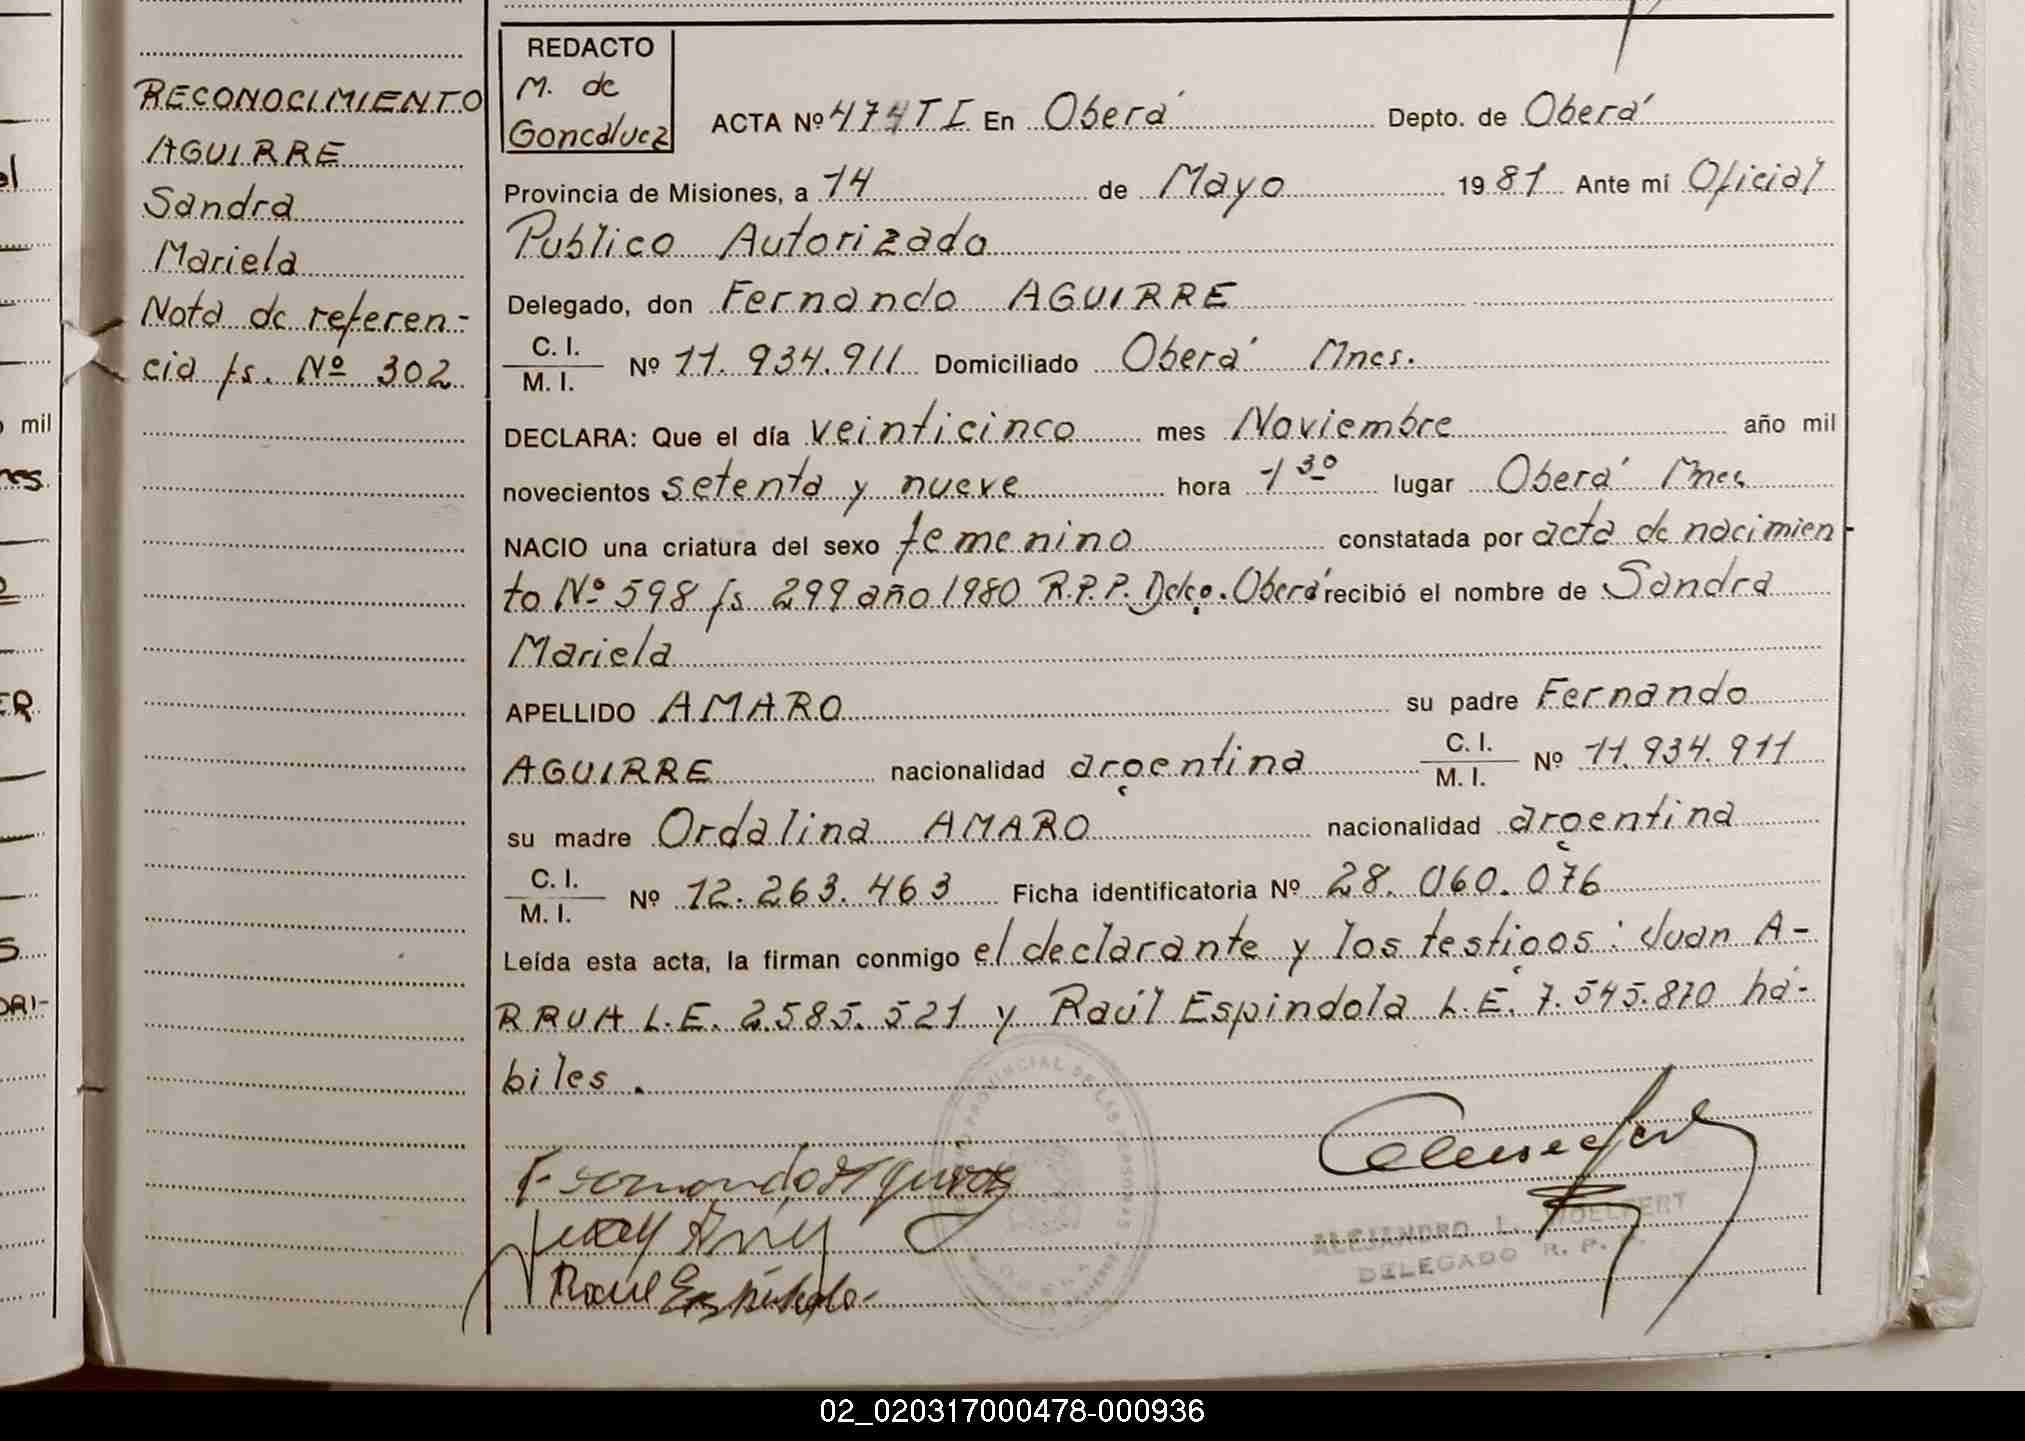 RECONOCIMIENTO
AGUIRRE
Sandra
Mariela
Nota de referen-
cia fs. Nº 302
REDACTO
M. de
Goncalvez
ACTA Nº 474 T I En Oberá Depto. de Oberá
Provincia de Misiones, a 14 de Mayo 1981 Ante mí Oficial
Publico Autorizado
Delegado, don Fernando AGUIRRE
C. I.
M. I. Nº 11.934.911 Domiciliado Oberá Mnes.
DECLARA: Que el día veinticinco mes Noviembre año mil
novecientos setenta y nueve hora 1 30 lugar Oberá Mnes
NACIO una criatura del sexo femenino constatada por acta de nacimien-
to Nº 598 fs 299 año 1980 R.P.P. Deleg. Oberá recibió el nombre de Sandra
Mariela
APELLIDO AMARO su padre Fernando
AGUIRRE nacionalidad argentina C. I.
M. I. Nº 11.934.911
su madre Ordalina AMARO nacionalidad argentina
C. I.
M. I. Nº 12.263.463 Ficha identificatoria Nº 28.060.076
Leída esta acta, la firman conmigo el declarante y los testigos: Juan A-
RRUA L.E. 2.585.521 y Raúl Espindola L.E. 7.545.870 há-
biles.
Fernando Aguirre
Raul Espindola
ALEJANDRO L. WOELFERT
DELEGADO R. P.
02_020317000478-000936